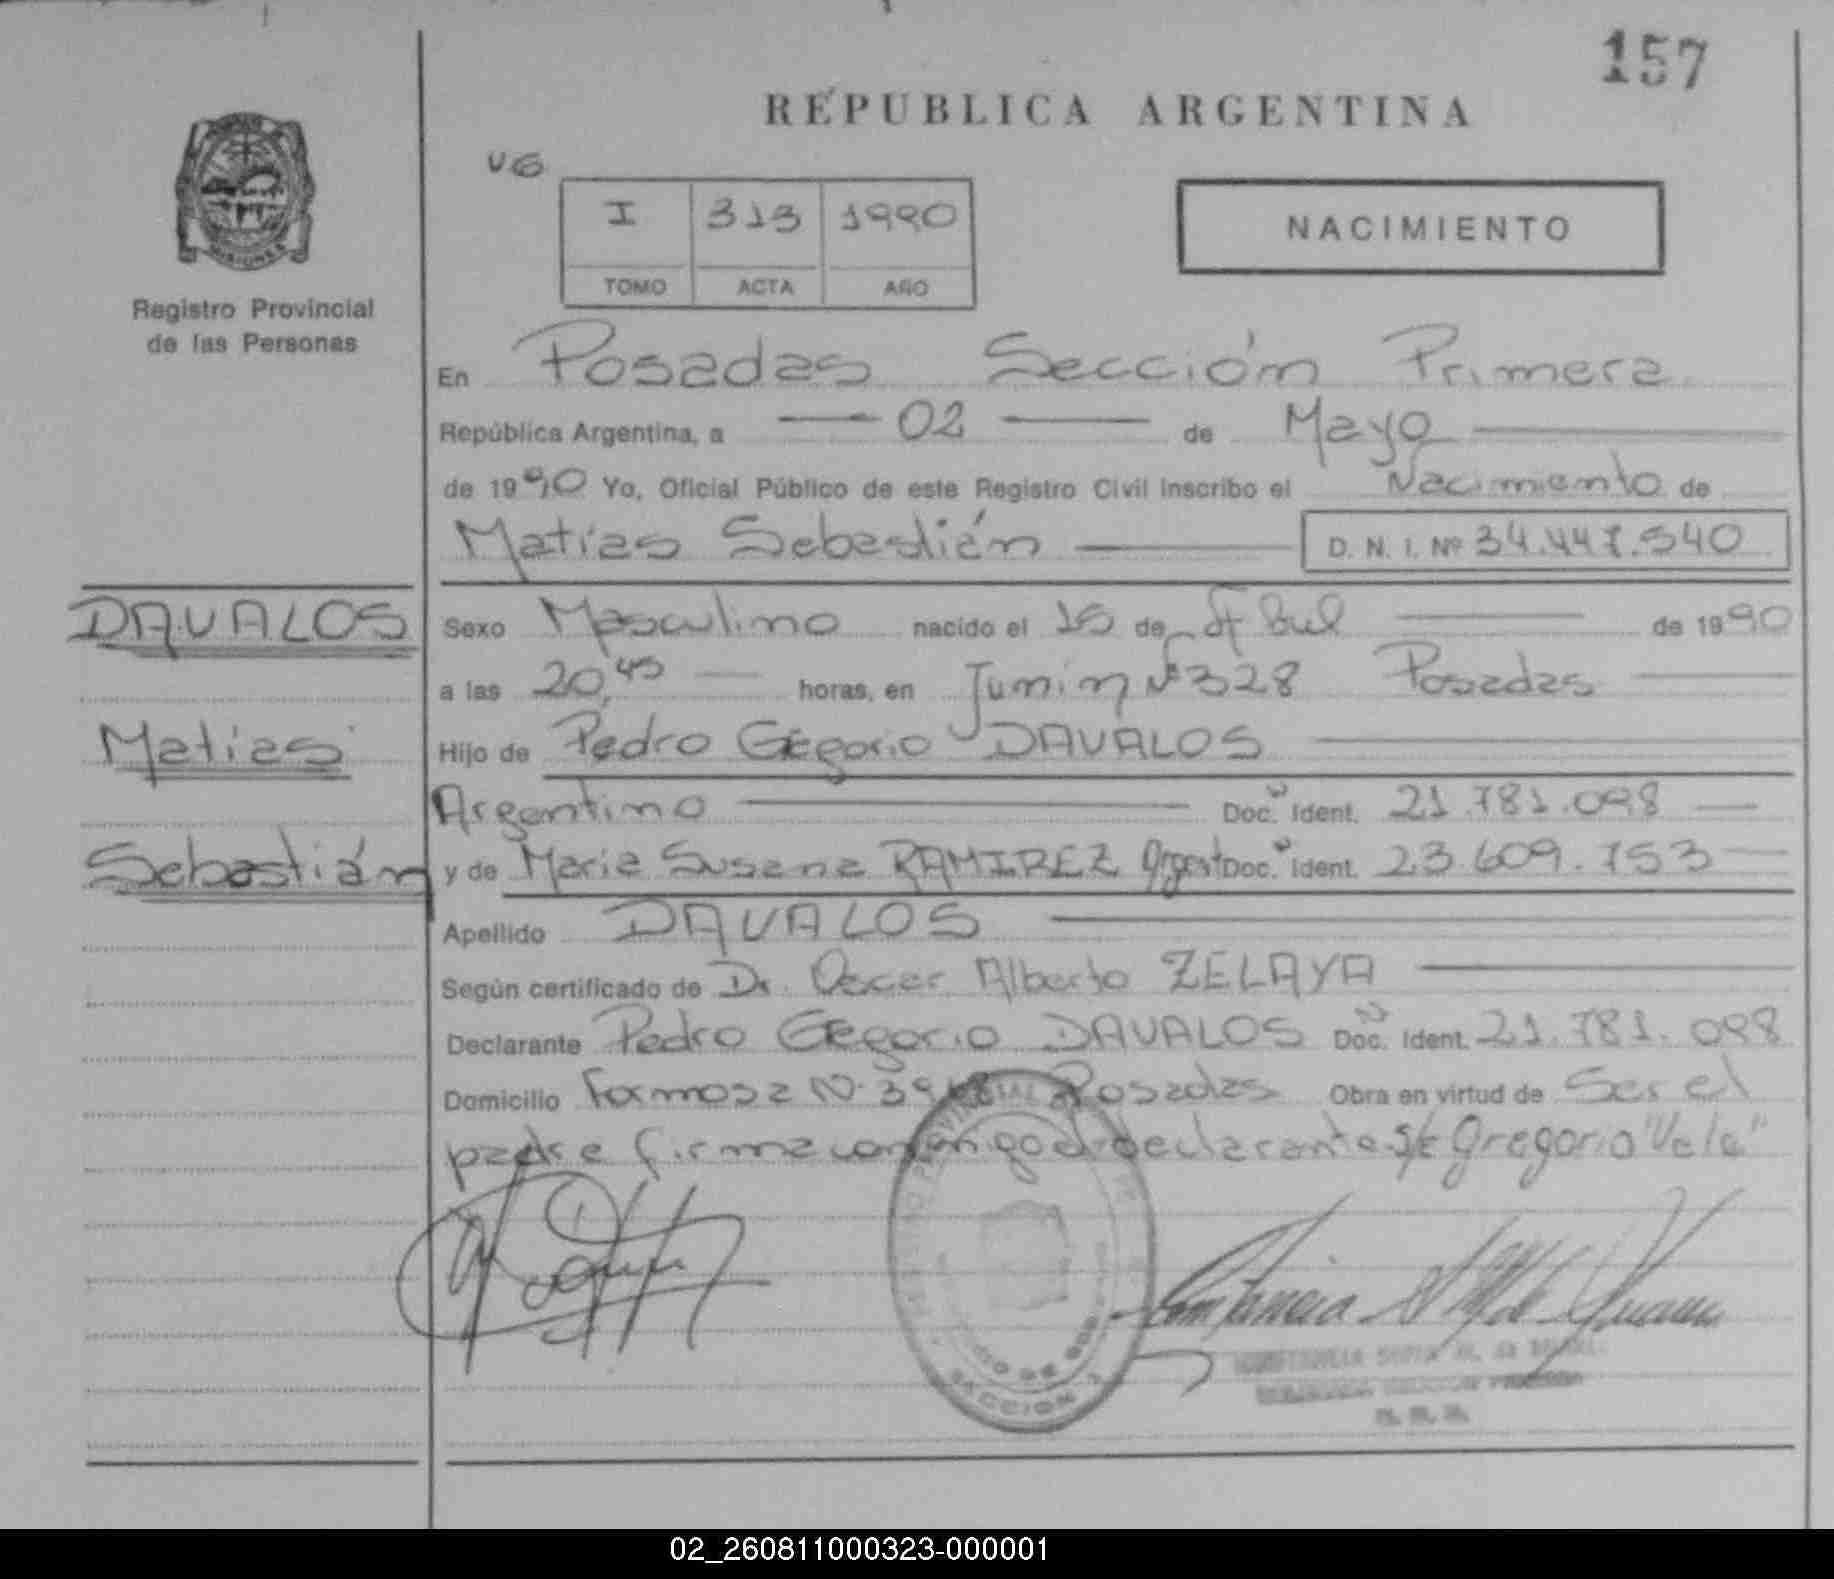 157
REPUBLICA ARGENTINA
MISIONES
Registro Provincial
de las Personas
I 313 1990
TOMO ACTA AÑO
NACIMIENTO
En Posadas Sección Primera
República Argentina, a 02 de Mayo
de 1990 Yo, Oficial Público de este Registro Civil inscribo el Nacimiento de
Matías Sebastián D. N. I. Nº 34.447.540
DAVALOS
Matías
Sebastián
Sexo Masculino nacido el 15 de Abril de 1990
a las 20,45 horas, en Junín Nº 328 Posadas
Hijo de Pedro Gregorio DAVALOS
Argentino Doc. Ident. 21.781.098
y de María Susana RAMIREZ Argent Doc. Ident. 23.609.753
Apellido DAVALOS
Según certificado de Dr. Oscar Alberto ZELAYA
Declarante Pedro Gregorio DAVALOS Doc. Ident. 21.781.098
Domicilio Formosa Nº Posadas Obra en virtud de Ser el
padre firma conmigo el declarante S/R Gregorio "Vale"
SECCION 1
02_260811000323-000001